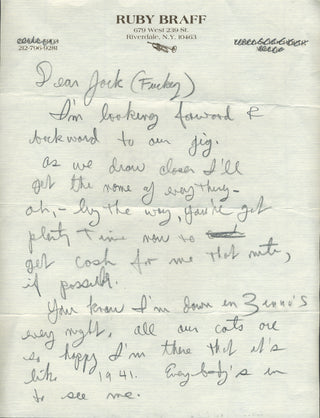 RUBY BRAFF
679 West 239 St.
Riverdale, N.Y. 10463
212-796-9281
Dear Jack (Fucky)
I'm looking forward &
backward to our gig.
As we draw closer I'll
get the name of everything -
oh, - by the way, you've got
plenty time now to
get cash for me that nite,
if possible.
You know I'm down in 3
every night, all our cats are
so happy I'm there that it's
like 1941. Everybody's in
to see me.